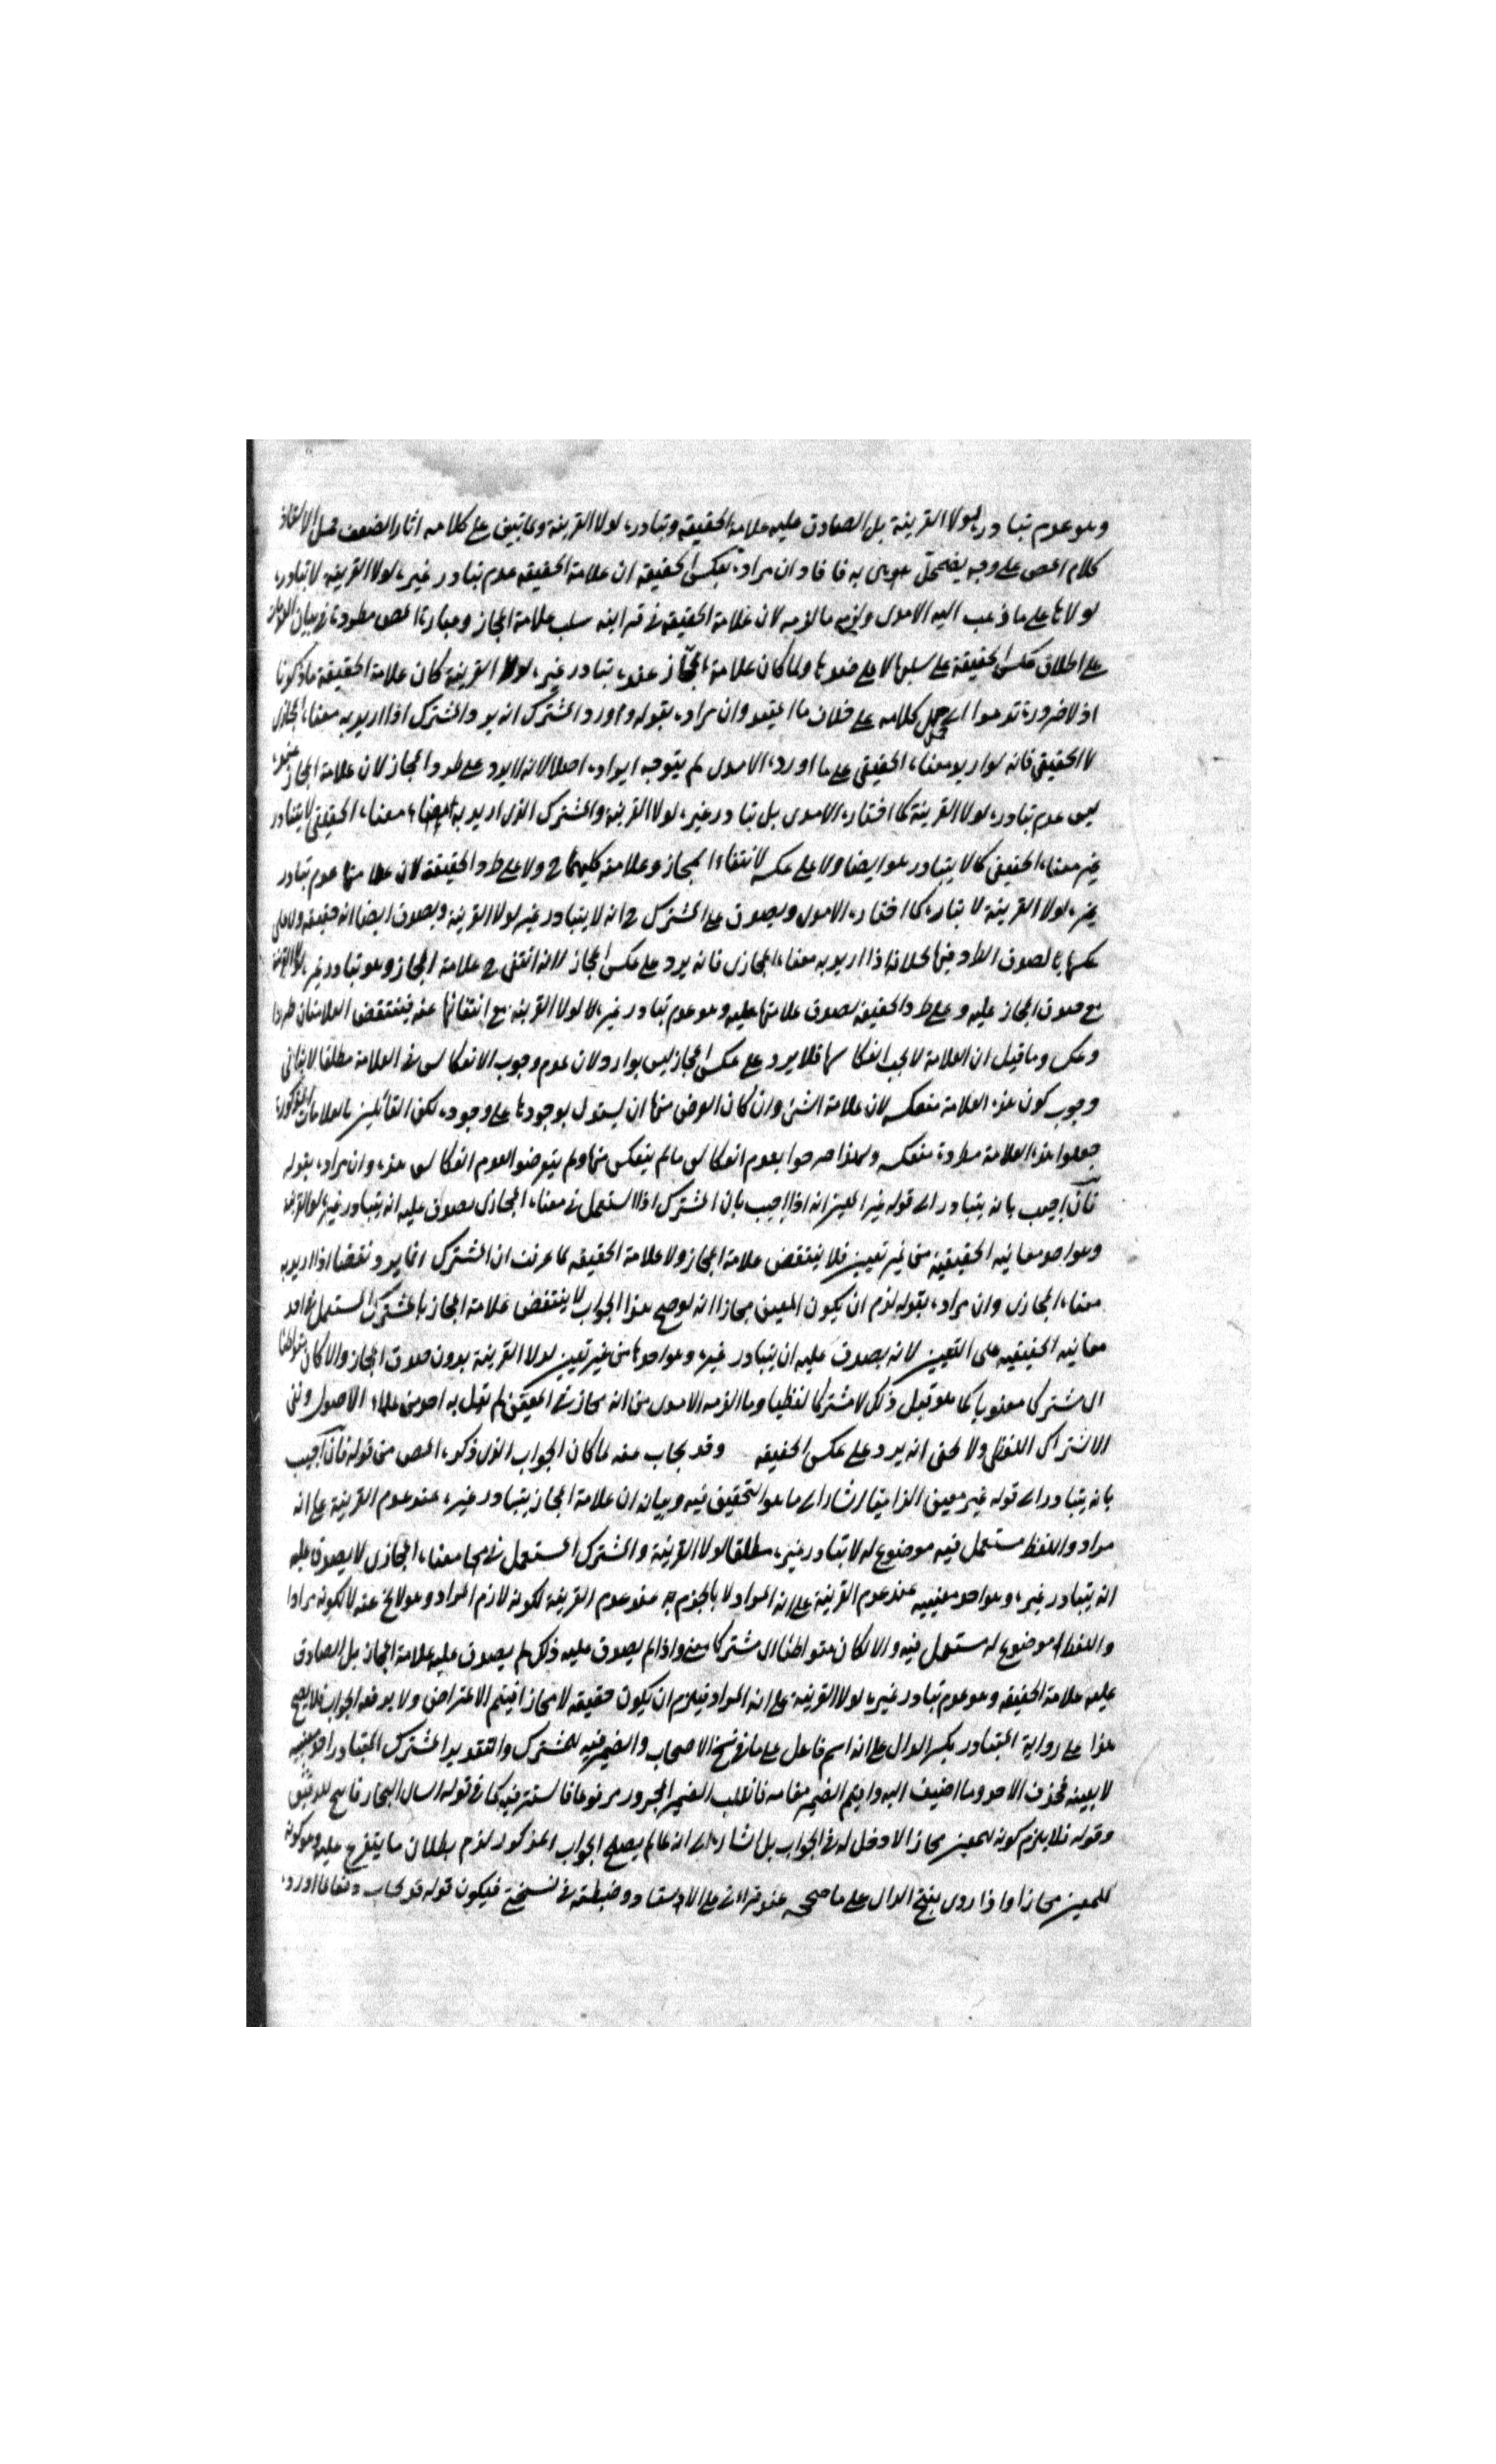 وهو عدم تبادره لولا القرينة بل الصادق عليه علامة الحقيقة وتبادره لولا القرينة وما يبتنى على كلامه اثار الضعف حمل الاستاذ
كلام المص على وجه يضمحل به فافاد ان مراده بعكس الحقيقة ان علامة الحقيقة عدم تبادر غيره لولا القرينة لا تبادره
لولاها على ما ذهب اليه الآمدى ولزمه ما لزمه لان علامة الحقيقة فى قرانه سلب علامة المجاز وعبارة المص مطردة فى بيان العلامات
على اطلاق عكس الحقيقة على سلبها لا على ضدها ولما كان علامة المجاز عنده تبادر غيره لولا القرينة كان علامة الحقيقة ما ذكرنا
اذ لا ضرورة تدعوا الى حمل كلامه على خلاف ما اعتقد وان مراده بقوله واورد المشترك انه يرد المشترك اذا اريد به معناه المجازى
لا الحقيقى فانه لو اريد معناه الحقيقى على ما اورده الآمدى لم يتوجه ايراده اصلا لانه لا يرد على طرد المجاز لان علامة المجاز عنده
ليس عدم تبادره لولا القرينة كما اختاره الآمدى بل تبادر غيره لولا القرينة والمشترك الذى اريد به معناه الحقيقى لا يتبادر
غير معناه الحقيقى كما لا يتبادر هو ايضا ولا على عكسه لانتفاء المجاز وعلامته كليهما ح ولا على طرد الحقيقة لان علامتها عدم تبادر
غيره لولا القرينة لا تبادره كما اختاره الآمدى ويصدق على المشترك ح انه لا يتبادر غيره لولا القرينة ويصدق ايضا انه حقيقة ولا على
عكسها لصدق الطرد فيها بخلاف ما اذا اريد به معناه المجازى فانه يرد على عكس المجاز لانه انتفى ح علامة المجاز وهو تبادر غيره لولا القرينة
مع صدق المجاز عليه وعلى طرد الحقيقة لصدق علامتها عليه وهو عدم تبادر غيره لولا القرينة مع انتفائها عنه فينتقض العلامتان طردا
وعكسا وما قيل ان العلامة لا يجب انعكاسها فلا يرد على عكس المجاز ليس بوارد لان عدم وجوب الانعكاس فى العلامة مطلقا لا ينافى
وجوب كون هذه العلامة منعكسه لان علامة الشئ وان كان الغرض منها ان يستدل بوجودها على وجوده لكن القائلين بالعلامات المذكورة
جعلوا هذه العلامة مطردة منعكسه ولهذا صرحوا بعدم انعكاس ما لم ينعكس منها ولم يتعرضوا لعدم انعكاس هذه وان مراده بقوله
فان اجيب بانه يتبادر الى قوله غير المعين انه اذا اجيب بان المشترك اذا استعمل فى معناه المجازى يصدق عليه انه يتبادر غيره لولا القرينة
وهو احد معانيه الحقيقية من غير تعيين فلا ينتقض علامة المجاز ولا علامة الحقيقه لما عرفت ان المشترك انما يرد نقضا اذا اريد به
معناه المجازى وان مراده بقوله لزم ان يكون المعين مجازا انه لو صح هذا الجواب لا ينتقض علامة المجاز بالمشترك المستعمل فى احد
معانيه الحقيقيه على التعيين لانه يصدق عليه ان يتبادر غيره وهو احدها من غير تعيين لولا القرينة بدون صدق المجاز والا كان متواطئا
اى مشتركا معنويا كما هو قبل ذلك لا مشتركا لفظيا وما التزمه الآمدى من انه مجاز فى المعين لم يقل به احد من علماء الاصول ونفى
الاشتراك اللفظى ولا يخفى انه يرد على عكس الحقيقه وقد يجاب عنه لما كان الجواب الذى ذكره المص من قوله فان اجيب
بانه يتبادر الى قوله غير معين الزاميا اشار الى ما هو التحقيق فيه وبيانه ان علامة المجاز يتبادر غيره عند عدم القرينة على انه
مراد واللفظ مستعمل فيه موضوع له لا تبادر غيره مطلقا لولا القرينة والمشترك المستعمل فى معناه المجازى لا يصدق عليه
انه يتبادر غيره وهو احد معنييه عند عدم القرينة على انه المراد لا بالجزم به عند عدم القرينة لكونه لازم المراد وهو لا يخ عنه لا لكونه مرادا
واللفظ موضوع له مستعمل فيه والا لكان متواطئا اى مشتركا معنى واذا لم يصدق عليه ذلك لم يصدق عليه علامة المجاز بل الصادق
عليه علامة الحقيقه وهو عدم تبادر غيره لولا القرينة على انه المراد فيلزم ان يكون حقيقه لا مجازا فيتم الاعتراض ولا يدفعه الجواب فلا يصح
هذا على رواية المتبادر بكسر الدال على انه اسم فاعل على ما فى نسخ الاصحاب والضمير فيه للمشترك والتقدير المشترك المتبادر احد معنييه
لا بعينه فحذف الاحد وما اضيف اليه واقيم الضمير مقامه فانقلب الضمير المجرور مرفوعا فاستتر فيه كما فى قوله اسال البحار فانتحى للعقيق
وقوله فلا يلزم كونه للمعين مجازا لا دخل له فى الجواب بل اشارة الى انه لما لم يصح الجواب المذكور لزم بطلان ما يتفرع عليه وهو كونه
للمعين مجازا واذا روى بفتح الدال على ما صححه عند قراءتى على الاستاد وضبطته فى نسختى فيكون قوله قد يجاب دفعا لما اورده